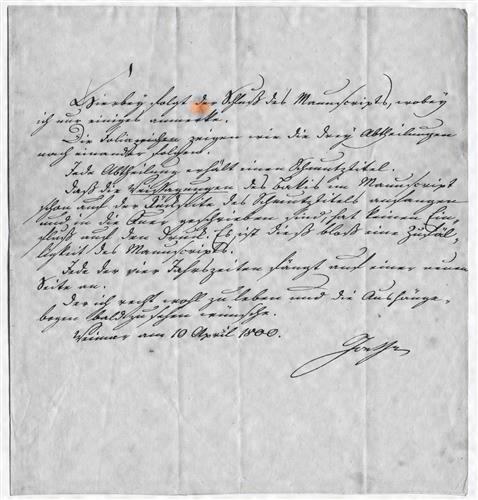 Hierbey folgt der Schluß des Manuscripts, wobey
ich nur einiges anmerke.
Die Foliozeichen zeigen wie die drey Abtheilungen
nach einander folgen.
Jede Abtheilung erhält einen Schmutztitel.
Daß die Weissagungen des Bakis im Manuscript
schon auf der Rückseite des Schmutztitels anfangen
und in die Quer geschrieben sind, hat keinen Ein-
fluß auf den Druck. Es ist dieß bloß eine Zufäl-
ligkeit des Manuscripts.
Jede der vier Jahrszeiten fängt auf einer neuen
Seite an.
Der ich recht wohl zu leben und die Aushänge-
bogen bald zu sehen wünsche.
Weimar am 10 April 1800.
Goethe